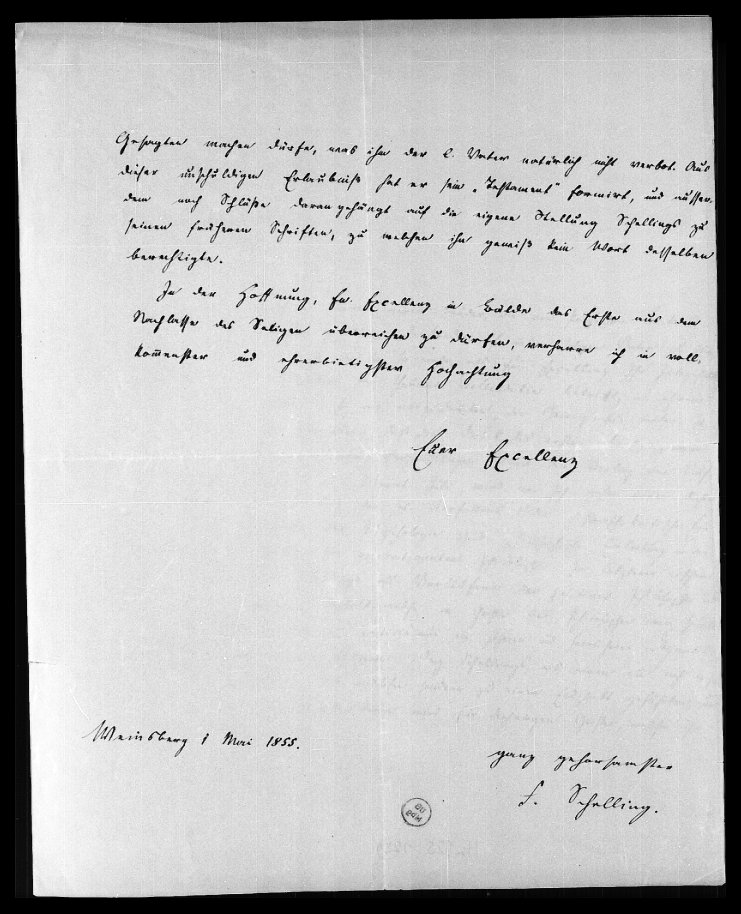 Gesagten machen dürfe, was ihm der l. Vater natürlich nicht verbot. Aus
dieser unschuldigen Erlaubniß hat er sein „Testament“ formirt, und ausser-
dem noch Schlüße daran gehängt auf die eigene Stellung Schellings zu
seinen früheren Schriften, zu welchen ihn gewiß kein Wort desselben
berechtigte.
In der Hoffnung, Ew. Excellenz in Bälde das Erste aus dem
Nachlasse des Seligen überreichen zu dürfen, verharre ich in voll-
kommenster und ehrerbietigster Hochachtung
Euer Excellenz
Weinsberg 1 Mai 1855.
ganz gehorsamster
F. Schelling.